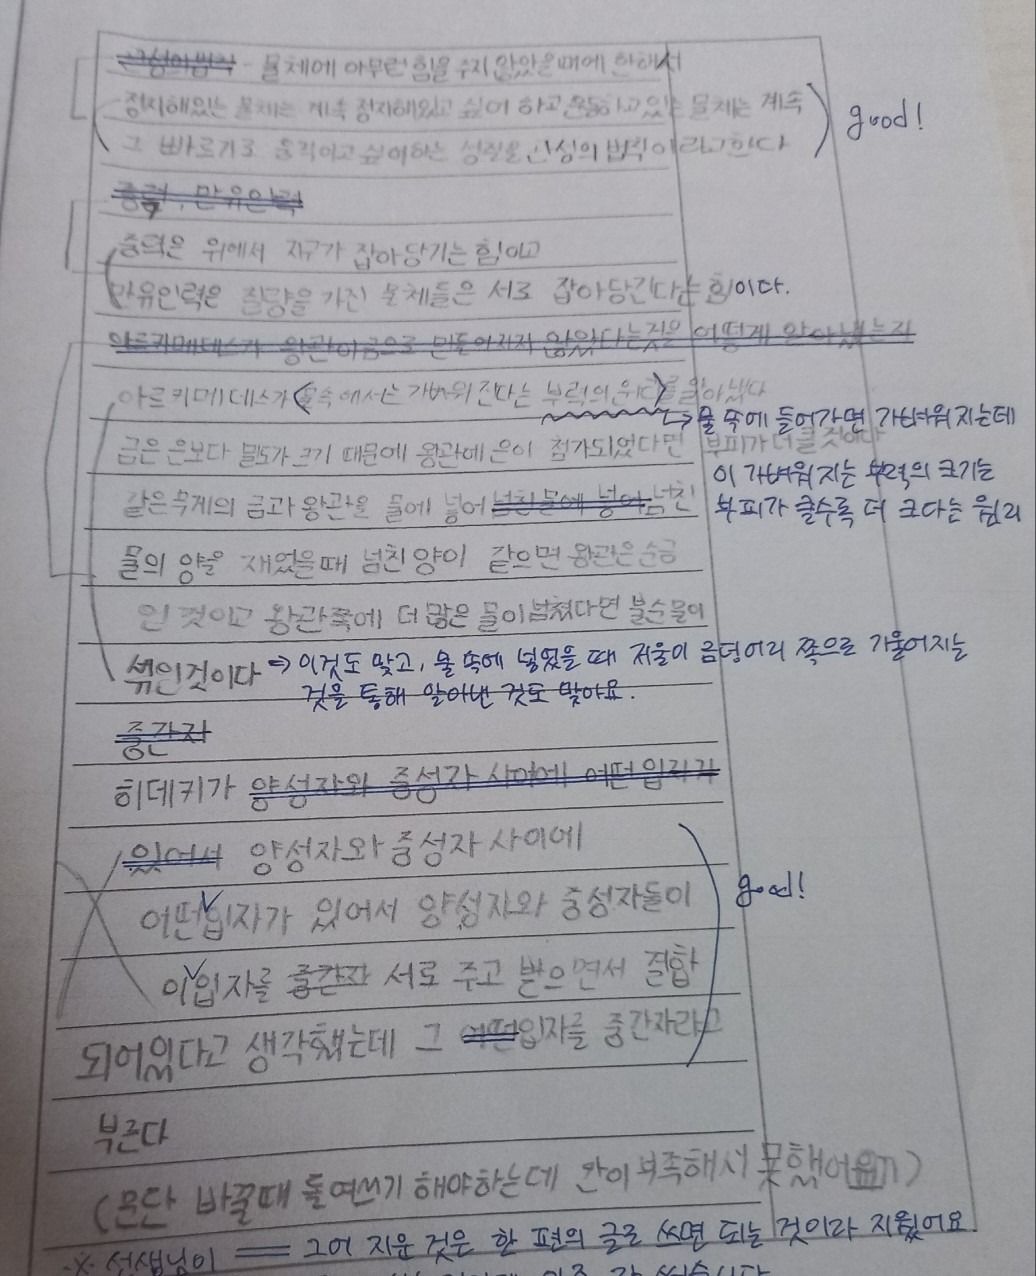 관성의법칙 - 물체에 아무런 힘을 주지 않았을때에 한해서
정지해있는 물체는 계속 정지해있고 싶어 하고 운동하고 있는 물체는 계속
good!
그 빠르기로 움직이고 싶어하는 성질을 관성의 법칙이라고한다
중력, 만유인력
중력은 위에서 지구가 잡아당기는 힘이고
만유인력은 질량을 가진 물체들은 서로 잡아당긴다는 힘이다.
아르키메데스가 왕관이 금으로 만들어지지 않았다는것을 어떻게 알아냈는지
아르키메데스가 물속에서는 가벼워진다는 부력의 원리를 알아냈다
→ 물 속에 들어가면 가벼워지는데
금은 은보다 밀도가 크기 때문에 왕관에 은이 첨가되었다면 부피가 더 클 것이다
이 가벼워지는 부력의 크기는
같은 무게의 금과 왕관을 물에 넣어 넘친물에 넣어 넘친
부피가 클수록 더 크다는 원리
물의 양을 재었을때 넘친양이 같으면 왕관은 순금
인 것이고 왕관쪽에 더 많은 물이 넘쳤다면 불순물이
섞인것이다 → 이것도 맞고, 물 속에 넣었을 때 저울이 금덩어리 쪽으로 기울어지는
것을 통해 알아낸 것도 맞아요.
중간자
히데키가 양성자와 중성자 사이에 어떤입자가
있어서 양성자와 중성자 사이에
어떤입자가 있어서 양성자와 중성자들이
good!
이입자를 중간자 서로 주고 받으면서 결합
되어있다고 생각했는데 그 어떤입자를 중간자라고
부른다
(문단 바꿀때 들여쓰기 해야하는데 칸이 부족해서 못했어요ㅠ)
※ 선생님이 == 그어 지운 것은 한 편의 글로 쓰면 되는 것이라 지웠어요.